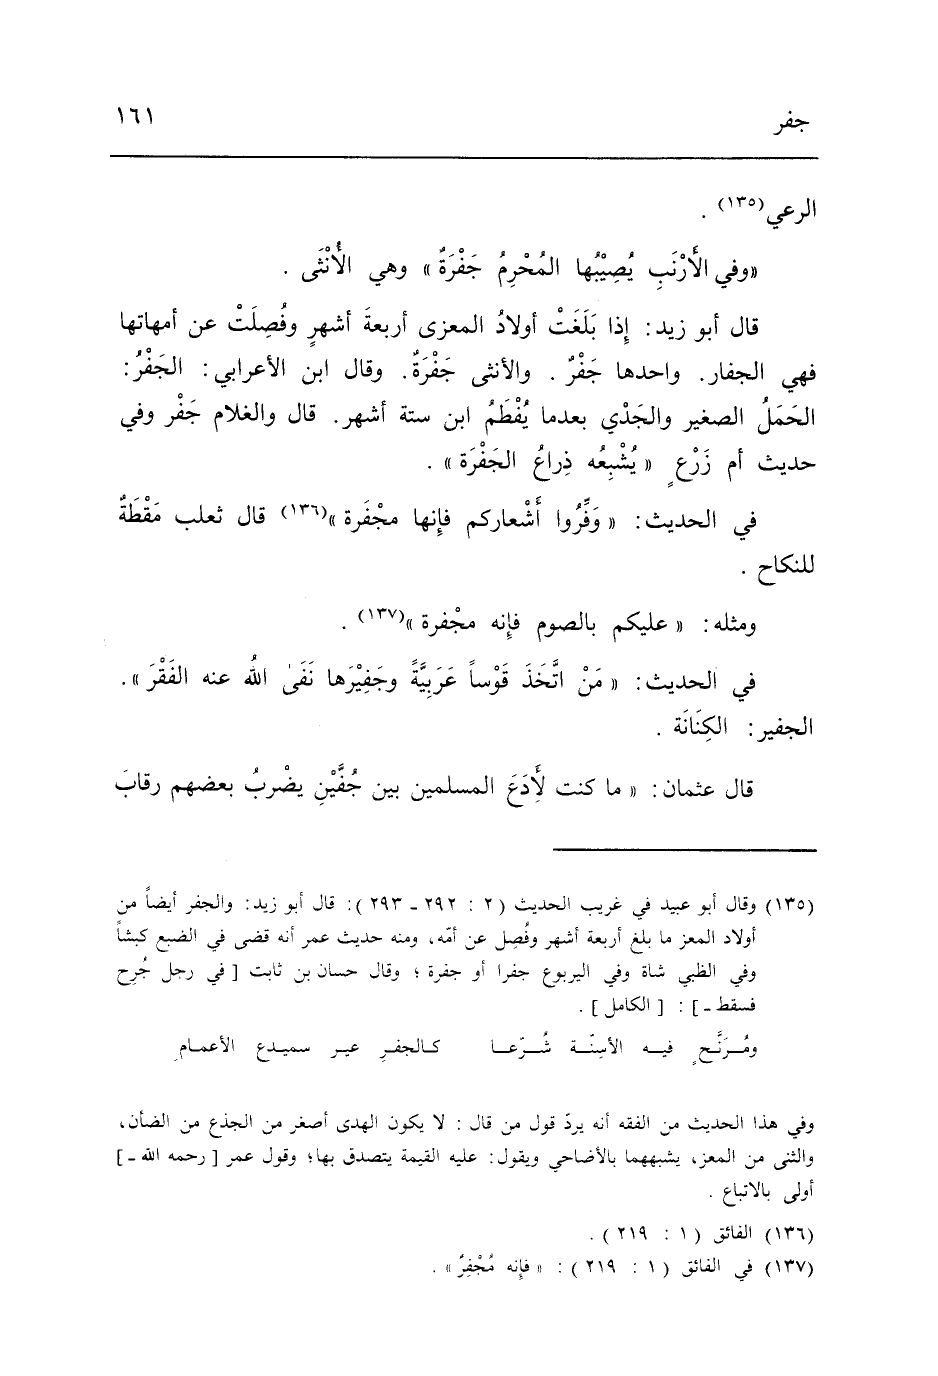 جفر ١٦١
الرعي(١٣٥) .
«وفي الأَرْنَبِ يُصِيْبُها المُحْرِمُ جَفْرَةٌ» وهي الأُنْثَى .
قال أبو زيد: إِذا بَلَغَتْ أولادُ المعزى أربعةَ أشهرٍ وفُصِلَتْ عن أمهاتها
فهي الجفار. واحدها جَفْرٌ . والأنثى جَفْرَةٌ. وقال ابن الأعرابي: الجَفْرُ:
الحَمَلُ الصغير والجَدْي بعدما يُفْطَمُ ابن ستة أشهر. قال والغلام جَفْر وفي
حديث أم زَرْعٍ « يُشْبِعُه ذِراعُ الجَفْرَة » .
في الحديث: « وَفِّرُوا أَشْعاركم فإنها مجْفَرة »(١٣٦) قال ثعلب مَقْطَةٌ
للنكاح .
ومثله: « عليكم بالصوم فإنه مجْفرة »(١٣٧) .
في الحديث: « مَنْ اتَّخَذَ قَوْساً عَرَبِيَّةً وجَفِيْرَها نَفَىٰ اللهُ عنه الفَقْرَ ».
الجفير: الكِنَانَة .
قال عثمان: « ما كنت لأَِدَعَ المسلمين بين جُفَّيْنِ يضْربُ بعضهم رقابَ
(١٣٥) وقال أبو عبيد في غريب الحديث (٢ : ٢٩٢ ـ ٢٩٣ ): قال أبو زيد: والجفر أيضاً من
أولاد المعز ما بلغ أربعة أشهر وفُصِل عن أمّه، ومنه حديث عمر أنه قضى في الضبع كبشاً
وفي الظبي شاة وفي اليربوع جفرا أو جفرة ؛ وقال حسان بن ثابت [ في رجل جُرح
فسقط ـ ] : [ الكامل ] .
ومُـرَنَّـحٍ فيـه الأسِنّـة شُـرّعـا كـالجفـرِ غيـر سميـدع الأعمـامِ
وفي هذا الحديث من الفقه أنه يردّ قول من قال : لا يكون الهدى أصغر من الجذع من الضأن،
والثنى من المعز، يشبههما بالأضاحي ويقول: عليه القيمة يتصدق بها؛ وقول عمر [ رحمه الله ـ ]
أولى بالاتباع .
(١٣٦) الفائق ( ١ : ٢١٩ ) .
(١٣٧) في الفائق ( ١ : ٢١٩ ) : « فإنه مُجْفِرٌ » .